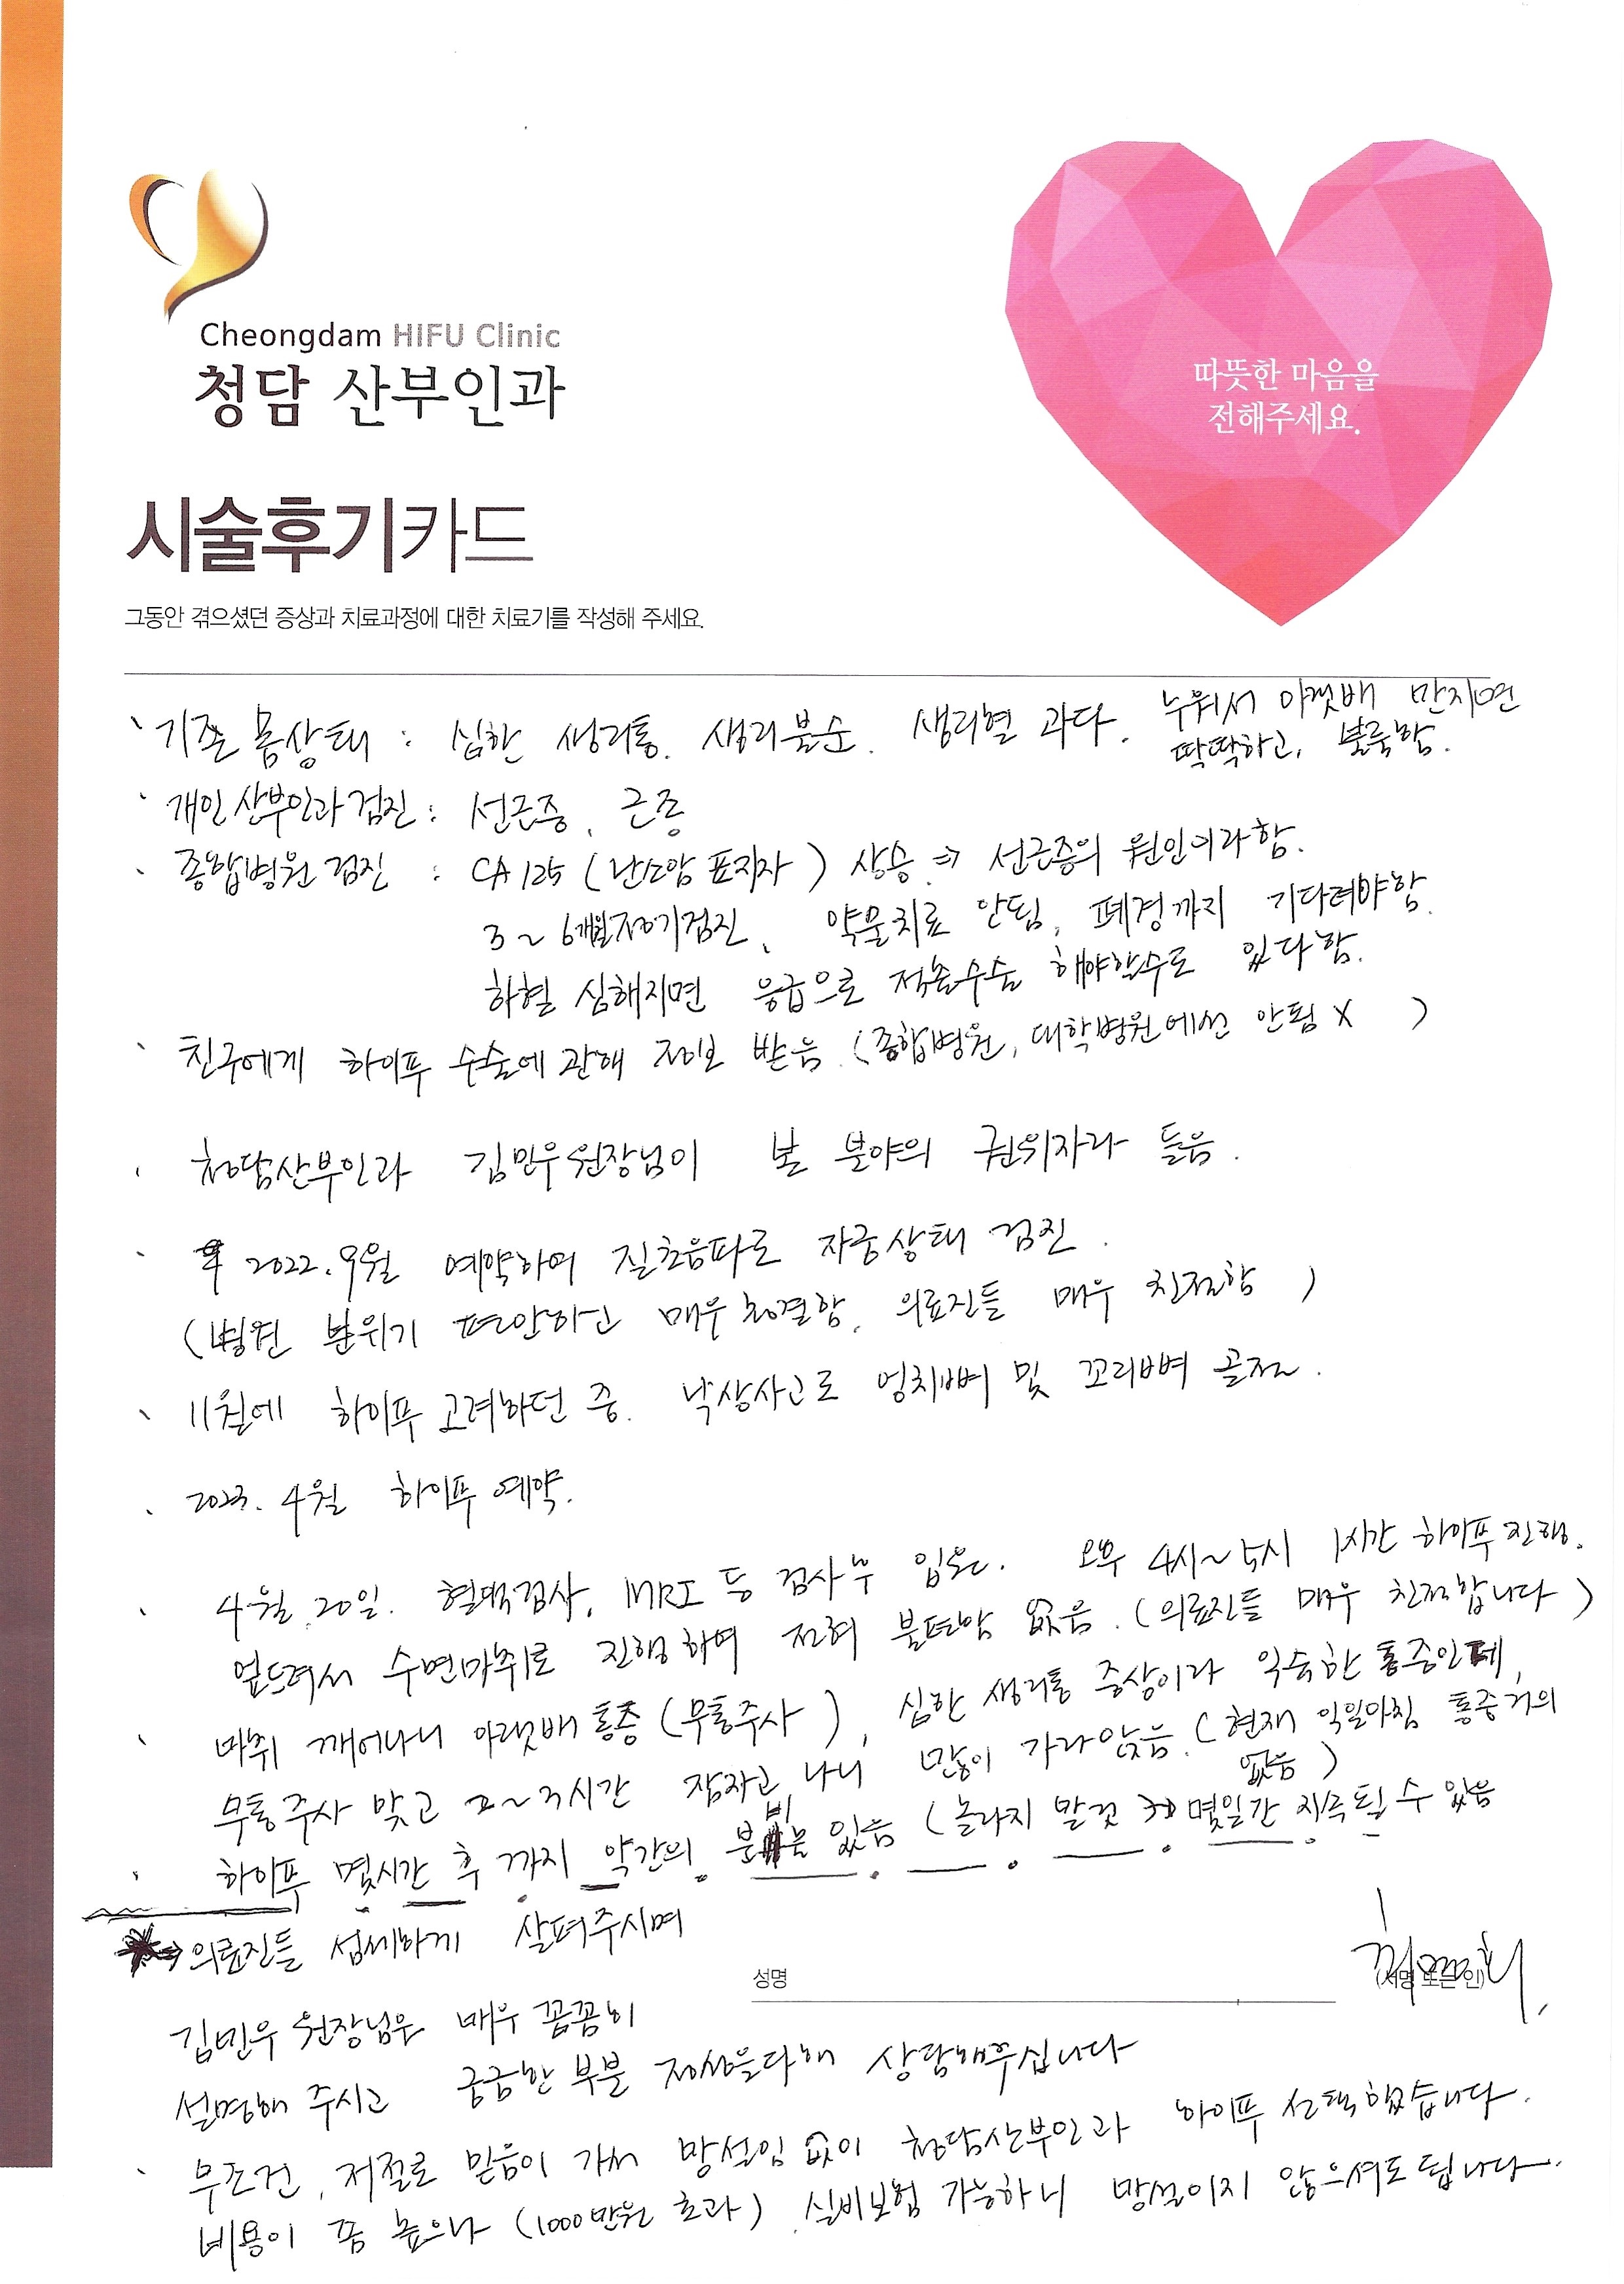 Cheongdam HIFU Clinic
청담 산부인과
따뜻한 마음을
전해주세요.
시술후기카드
그동안 겪으셨던 증상과 치료과정에 대한 치료기를 작성해 주세요.
기존 몸상태 : 심한 생리통. 생리불순. 생리혈 과다. 누워서 아랫배 만지면
딱딱하고, 볼록함.
개인산부인과검진 : 선근증, 근종
종합병원 검진 : CA125 (난소암 표지자) 상승 ⇒ 선근증의 원인이라함.
3~6개월정기검진, 약물치료 안됨, 폐경까지 기다려야함.
하혈 심해지면 응급으로 적출수술 해야할수도 있다함.
친구에게 하이푸 수술에 관해 정보 받음. (종합병원, 대학병원에선 안됨 X )
청담산부인과 김민우원장님이 본 분야의 권위자라 들음.
2022. 9월 예약하여 질초음파로 자궁상태 검진.
(병원 분위기 편안하고 매우 청결함. 의료진들 매우 친절함 )
11월에 하이푸 고려하던 중. 낙상사고로 엉치뼈 및 꼬리뼈 골절.
2023. 4월 하이푸 예약.
4월 20일. 혈액검사, MRI 등 검사후 입원. 오후 4시~5시 1시간 하이푸 진행.
엎드려서 수면마취로 진행하여 전혀 불편함 없음. (의료진들 매우 친절합니다)
마취 깨어나니 아랫배 통증 (무통주사), 심한 생리통 증상이라 익숙한 통증인데,
무통주사 맞고 2~3시간 잠자고 나니 많이 가라앉음. (현재 익일아침 통증 거의
없음)
하이푸 몇시간 후 까지 약간의 분비물 있음 (놀라지 말것 몇일간 지속될 수 있음
⇒ 의료진들 섬세하게 살펴주시며
성명
(서명 또는 인)
김민우 원장님은 매우 꼼꼼히
설명해 주시고 궁금한 부분 정성을다해 상담해주십니다
무조건, 저절로 믿음이 가서 망설임 없이 청담산부인과 하이푸 선택했습니다.
비용이 좀 높으나 (1000만원 초과) 실비보험 가능하니 망설이지 않으셔도 됩니다.